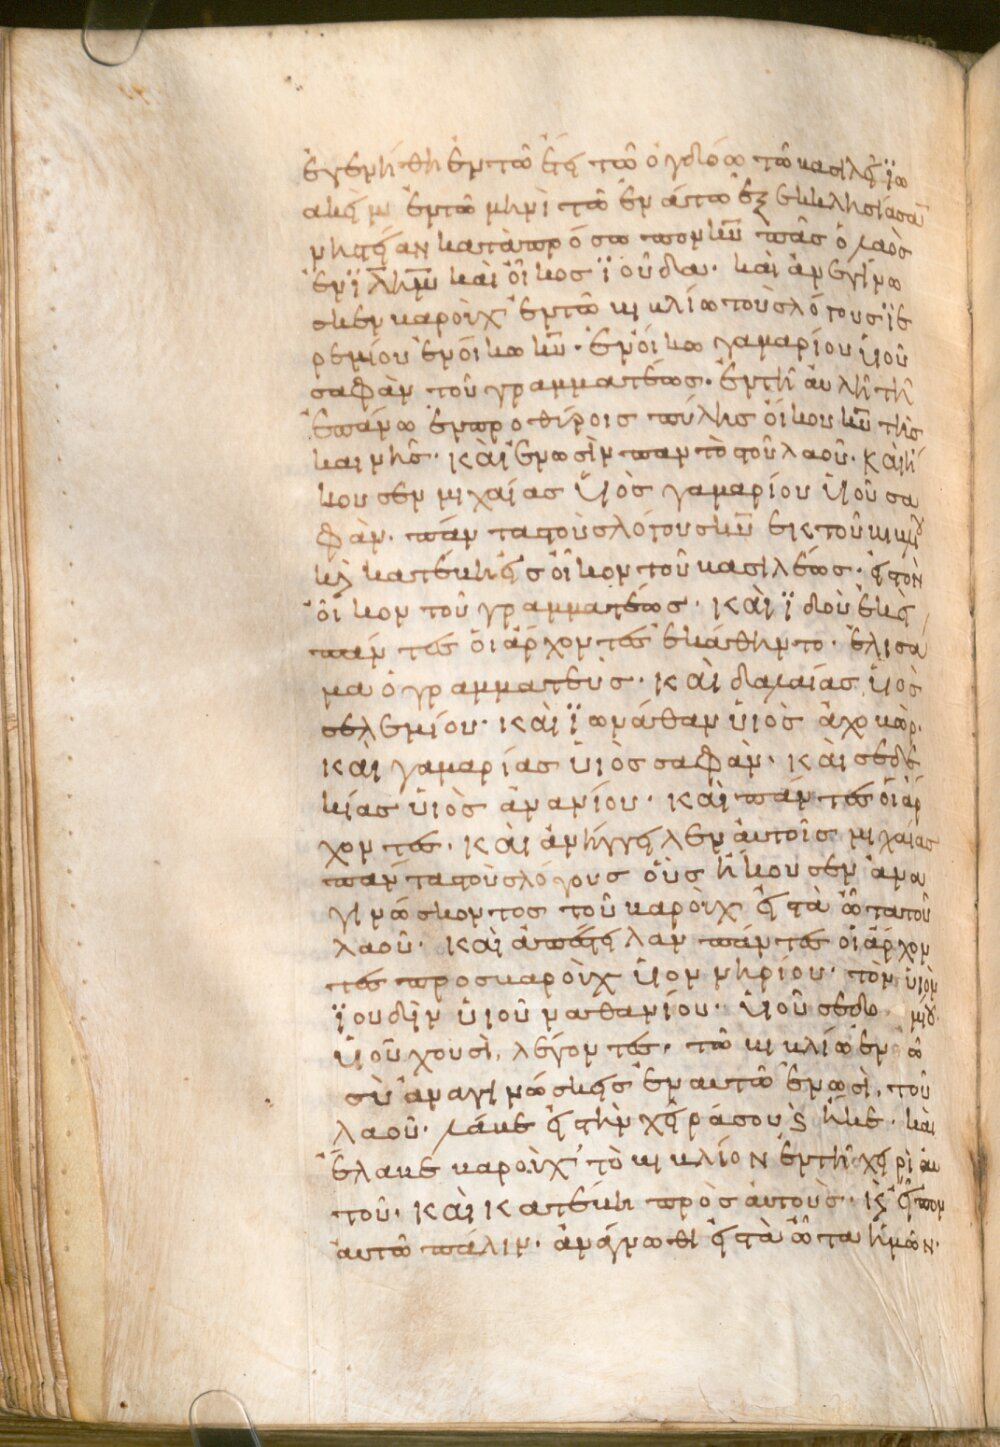 ἐγενήθη ἐν τῶ ἔτει τῶ ὀγδόω τῶ βασιλεῖ ϊω
ακεὶμ ἐν τῶ μηνὶ τῶ ἐνάτω ἐξεκκλησίασα̅
νηστείαν κατὰ πρόσωπον κ̅υ̅ πᾶς ὁ λαὸς
ἐν ϊλη̅μ̅ καὶ οἶκος ϊοῦδα· καὶ ἀνεγίνω
σκεν βαροὺχ ἐν τῶ βιβλίω τοὺς λόγους ϊε
ρεμίου ἐν οἴκω κ̅υ̅· ἐν οἴκω γαμαρίου ὑιοῦ
σαφὰν τοῦ γραμματέως· ἐν τῆ αυλῆ τῆ
ἐπάνω ἐν προθύροις πύλης οἴκου κ̅υ̅ τῆς
καινῆς· κὰι ἐν ωσὶν παντὸς τοῦ λαοῦ. κὰι ἤ
κουσεν μιχαίας ὑιὸς γαμαρίου ὑιοῦ σα
φὰν· πάντας τοὺς λόγους κ̅υ̅ εκ τοῦ βιβλίου
κ̀ κατέβη εἰς οἶκον τοῦ βασιλέως· εἰς τὸν
οἶκον τοῦ γραμματέως· κὰι ϊδοὺ ἐκεῖ
πάντες οἱ ἄρχοντες ἐκάθηντο· ἐλισα
μα ὁ γραμματεὺς· κὰι δαλαίας ὑιὸς
σελεμίου· κὰι ϊωνάθαν ὑιὸς ἀχοβὼρ·
κὰι γαμαρίας ὑιὸς σαφὰν· κὰι σεδε
κίας ὑιὸς ἀνανίου· κὰι πάντες οἱ ἄρ
χοντες· κὰι ἀνήγγειλεν ἀυτοῖς μιχαίας
πάντας τοὺς λόγους οὓς ἤκουσεν ἀνα
γινώσκοντος τοῦ βαροὺχ εἰς τὰ ὦτα τοῦ
λαοῦ· κὰι ἀπέστειλαν πάντες οἱ ἄρχον
τες προς βαροὺχ ὑιον νηρίου· τὸν ὑιὸν
ϊουδὶν ὑιοῦ ναθανίου· ὑιοῦ σεδε μίου·
ὑιοῦ χουσὶ, λέγοντες· τῶ βιβλίω ἐν ὧ
σὺ ἀναγινώσκεις ἐν αυτῶ ἐν ωσὶ, τοῦ
λαοῦ· λάβε εἰς τὴν χεῖρά σου ϗ ἧκε· κὰι
ἔλαβε βαροὺχ τὸ βιβλίον ἐν τῆ χειρὶ ἀυ
τοῦ· κὰι κατέβη πρὸς ἀυτοὺς· κ̀ εἶπον
αυτῶ πάλιν· ἀνάγνωθι εἰς τὰ ὦτα ἡμῶν·